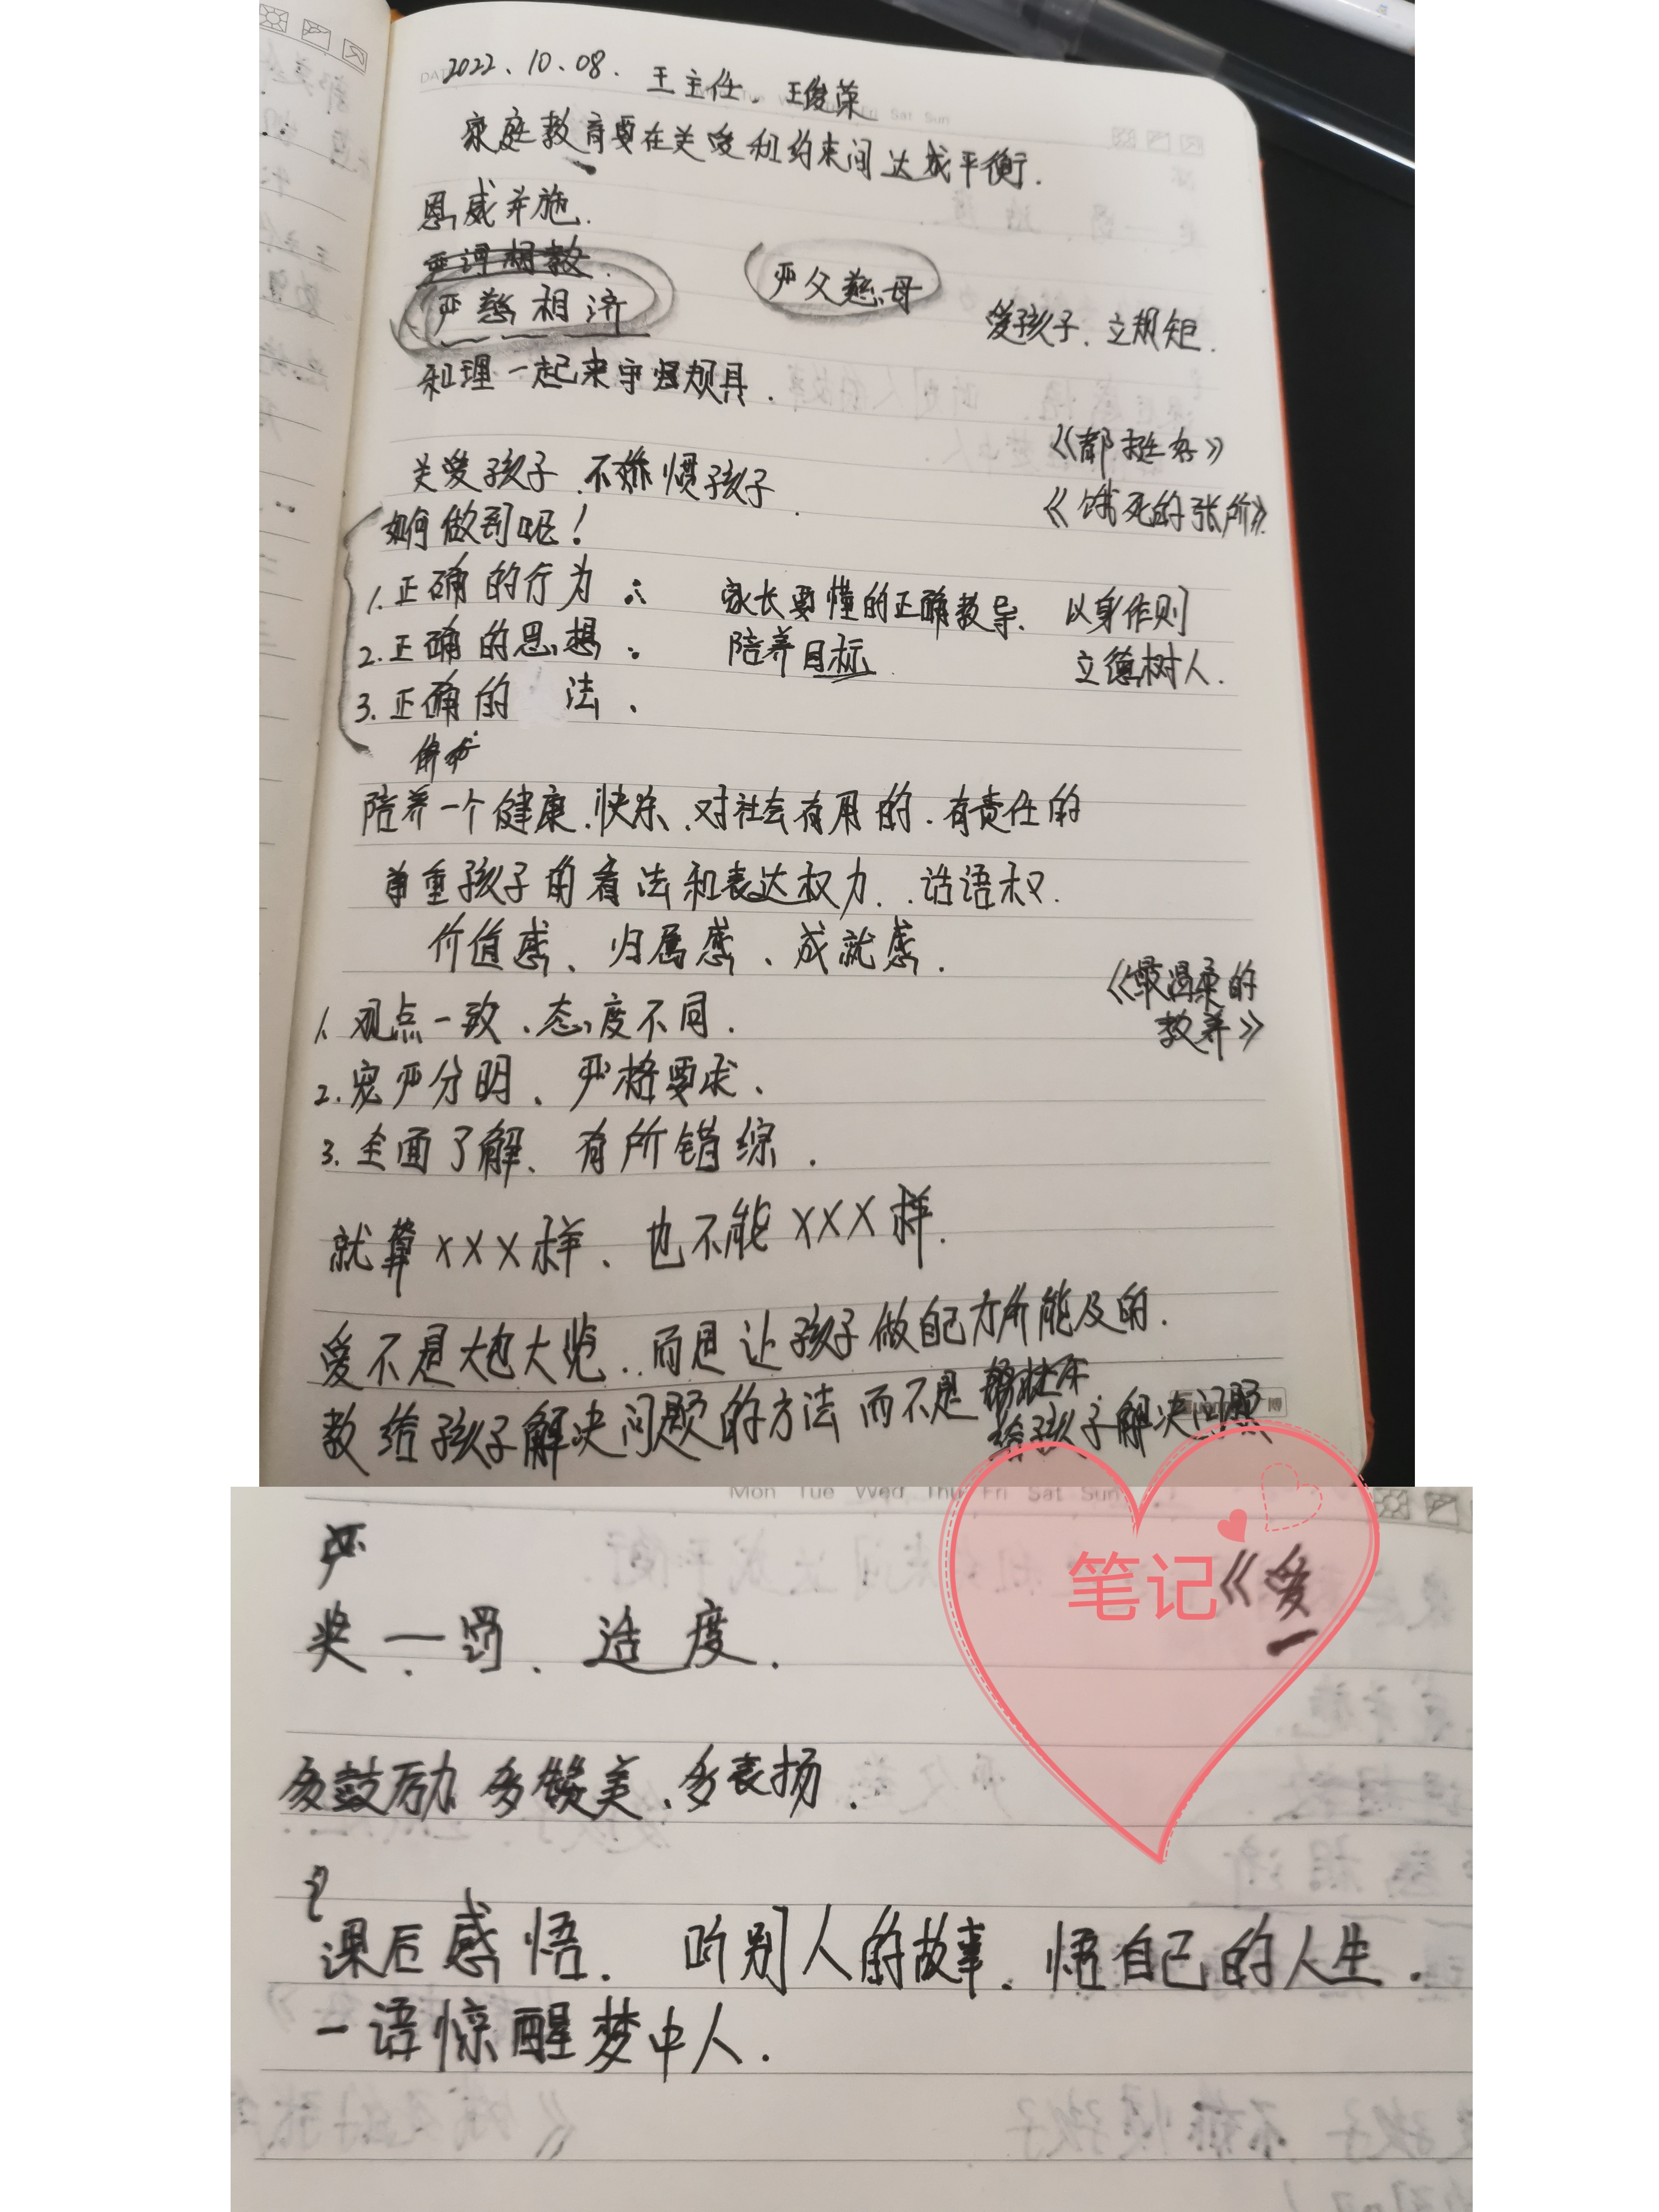 2022.10.08. 王主任. 王俊荣
家庭教育要在关爱和约束间达成平衡.
恩威并施.
严慈相济 严父慈母
爱孩子.立规矩.
和理一起来宇
《都挺好》
关爱孩子.不娇惯孩子.
《饿死的张所》
如何做到呢!
1.正确的行为: 家长要懂的正确教导. 以身作则
2.正确的思想: 陪养目标 立德树人.
3.正确的 法.
陪养一个健康.快乐.对社会有用的.有责任的
尊重孩子的看法和表达权力..话语权.
价值感、归属感、成就感.
《最温柔的
教养》
1.观点一致、态度不同.
2.宽严分明、严格要求、
3.全面了解、有所错综.
就算XXX样、也不能XXX样.
爱不是大包大览..而是让孩子做自己力所能及的.
教给孩子解决问题的方法而不是
给孩子解决问题
Mon Tue Wed Thu Fri Sat Sun
严
笔记
《爱
奖—罚、适度.
多鼓励 多赞美、多表扬.
课后感悟. 听别人的故事.悟自己的人生.
一语惊醒梦中人.